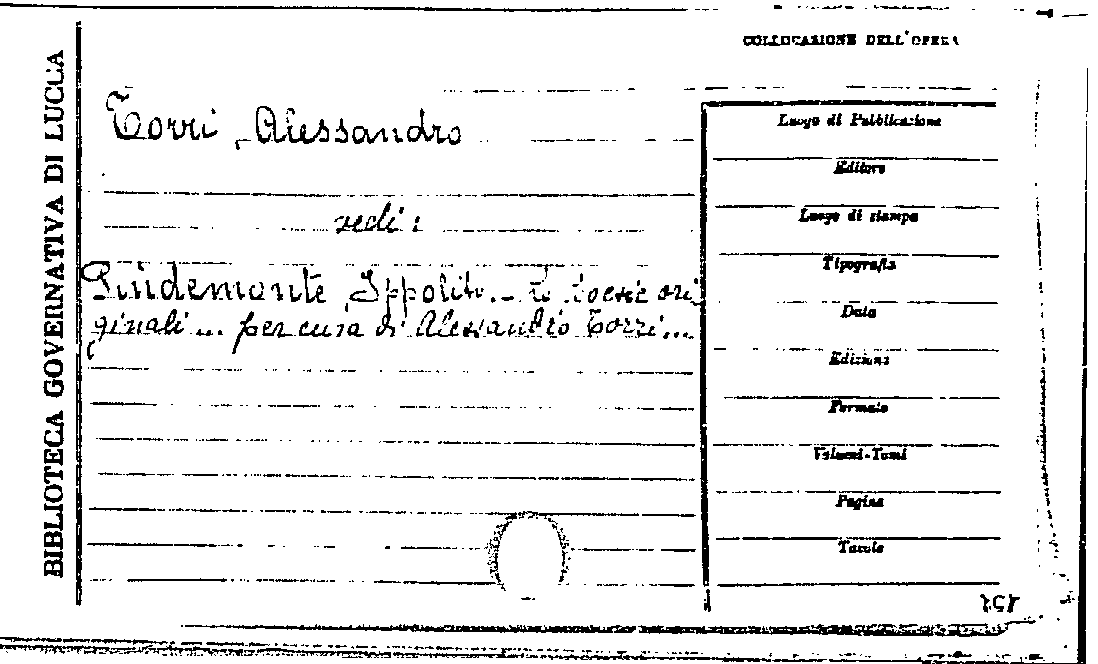 BIBLIOTECA GOVERNATIVA DI LUCCA
COLLOCAZIONE DELL'OPERA
Torri, Alessandro
vedi:
Pindemonte Ippolito. - Le Poesie ori
ginali ... per cura di Alessandro Torri...
Luogo di Pubblicazione
Editore
Luogo di stampa
Tipografia
Data
Edizione
Formato
Volumi-Tomi
Pagine
Tavole